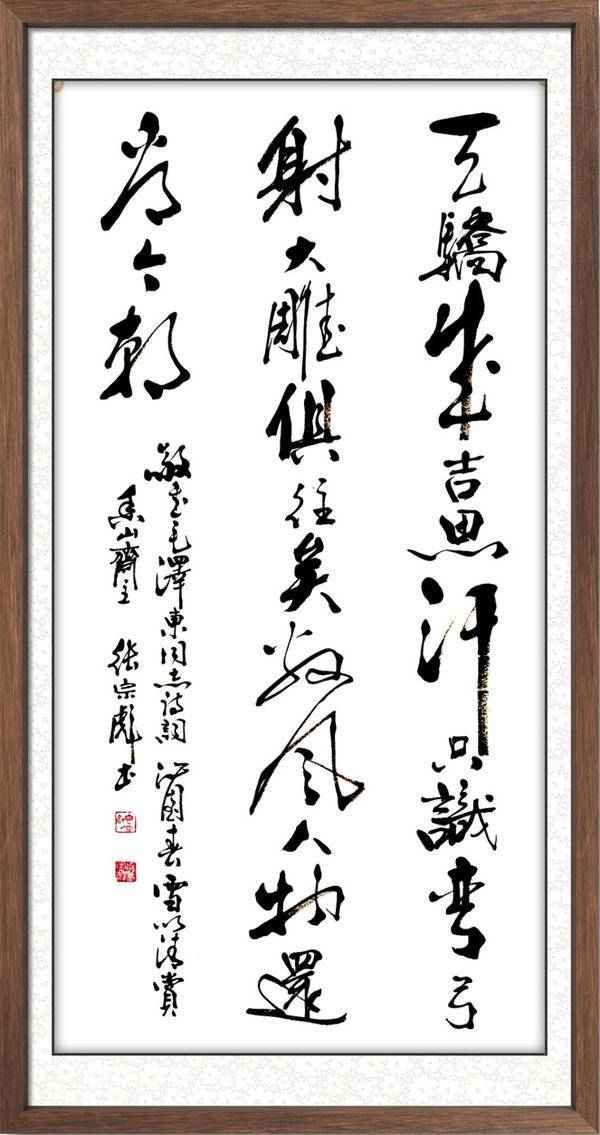 天驕成吉思汗只識弯弓
射大雕俱往矣数风人物還
看今朝
敬书毛澤東同志詩詞沁園春雪以清賞
香山齋主 張宗彪书